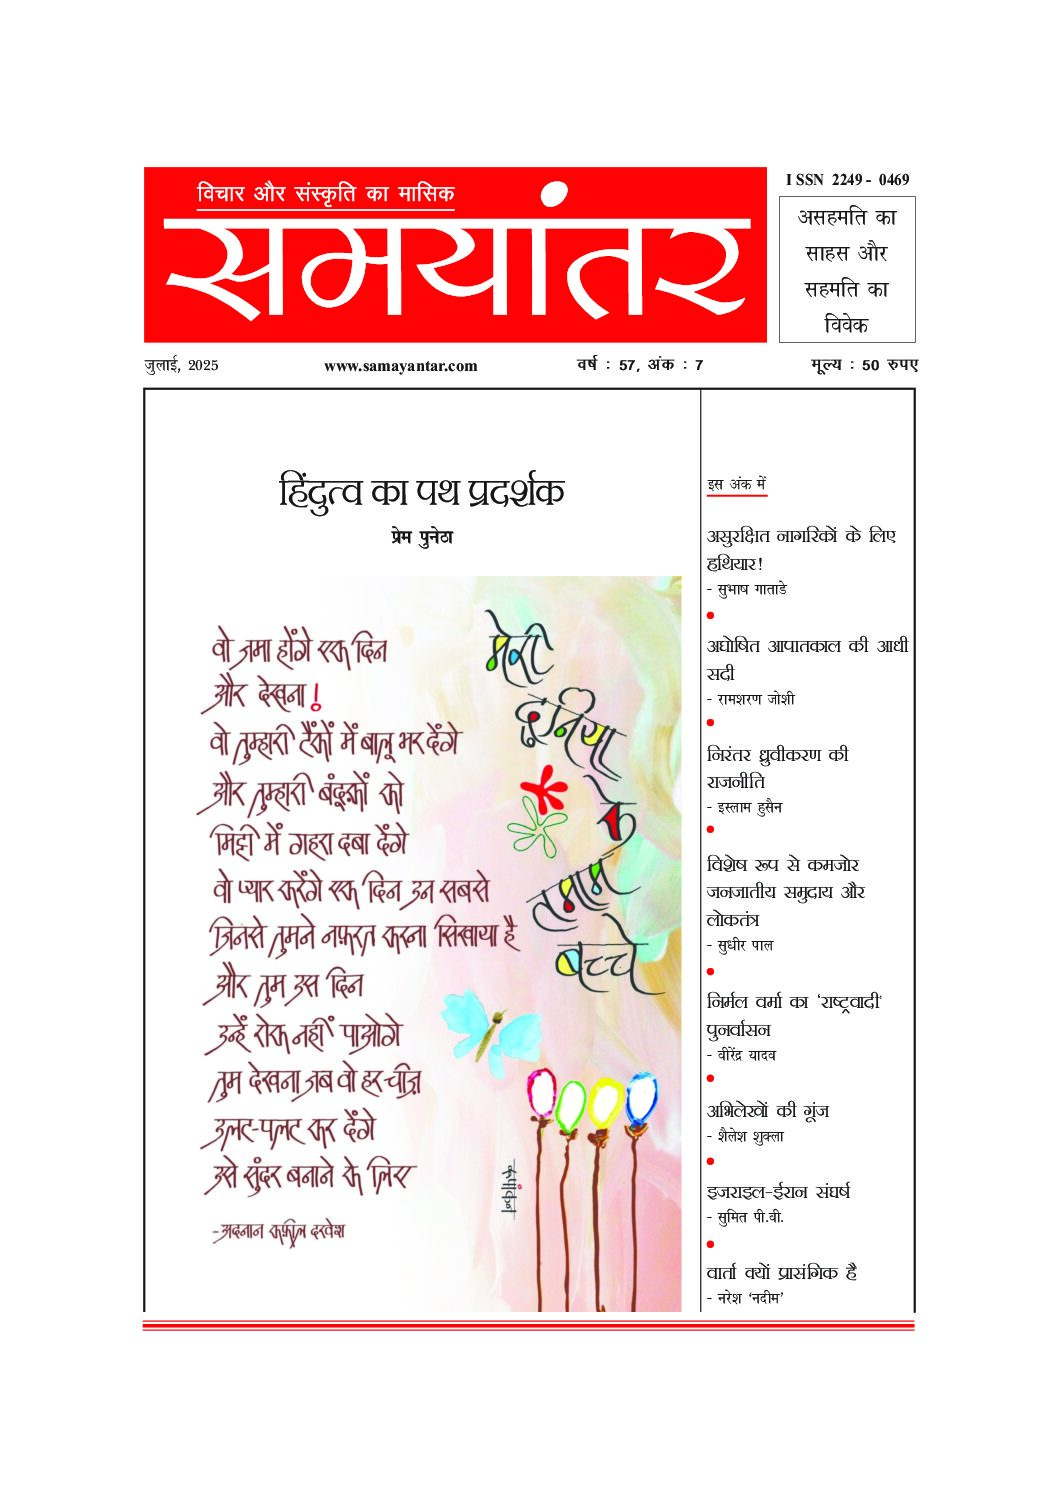 विचार और संस्कृति का मासिक
समयांतर
ISSN 2249 - 0469
असहमति का
साहस और
सहमति का
विवेक
जुलाई, 2025
www.samayantar.com
वर्ष : 57, अंक : 7
मूल्य : 50 रुपए
हिंदुत्व का पथ प्रदर्शक
प्रेम पुनेठा
वो जमा होंगे एक दिन
और देखना!
वो तुम्हारी टैंकों में बालू भर देंगे
और तुम्हारी बंदूकों को
मिट्टी में गहरा दबा देंगे
वो प्यार करेंगे एक दिन उन सबसे
जिनसे तुमने नफ़रत करना सिखाया है
और तुम उस दिन
उन्हें रोक नहीं पाओगे
तुम देखना जब वो हर चीज़
उलट-पलट कर देंगे
उसे सुंदर बनाने के लिए
-अदनान कफ़ील दरवेश
मेरी
दुनिया
के
तमाम
बच्चे
रूपांकन
इस अंक में
असुरक्षित नागरिकों के लिए
हथियार!
- सुभाष गाताडे
अघोषित आपातकाल की आधी
सदी
- रामशरण जोशी
निरंतर ध्रुवीकरण की
राजनीति
- इस्लाम हुसैन
विशेष रूप से कमजोर
जनजातीय समुदाय और
लोकतंत्र
- सुधीर पाल
निर्मल वर्मा का ‘राष्ट्रवादी’
पुनर्वासन
- वीरेंद्र यादव
अभिलेखों की गूंज
- शैलेश शुक्ला
इजराइल-ईरान संघर्ष
- सुमित पी.वी.
वार्ता क्यों प्रासंगिक है
- नरेश ‘नदीम’